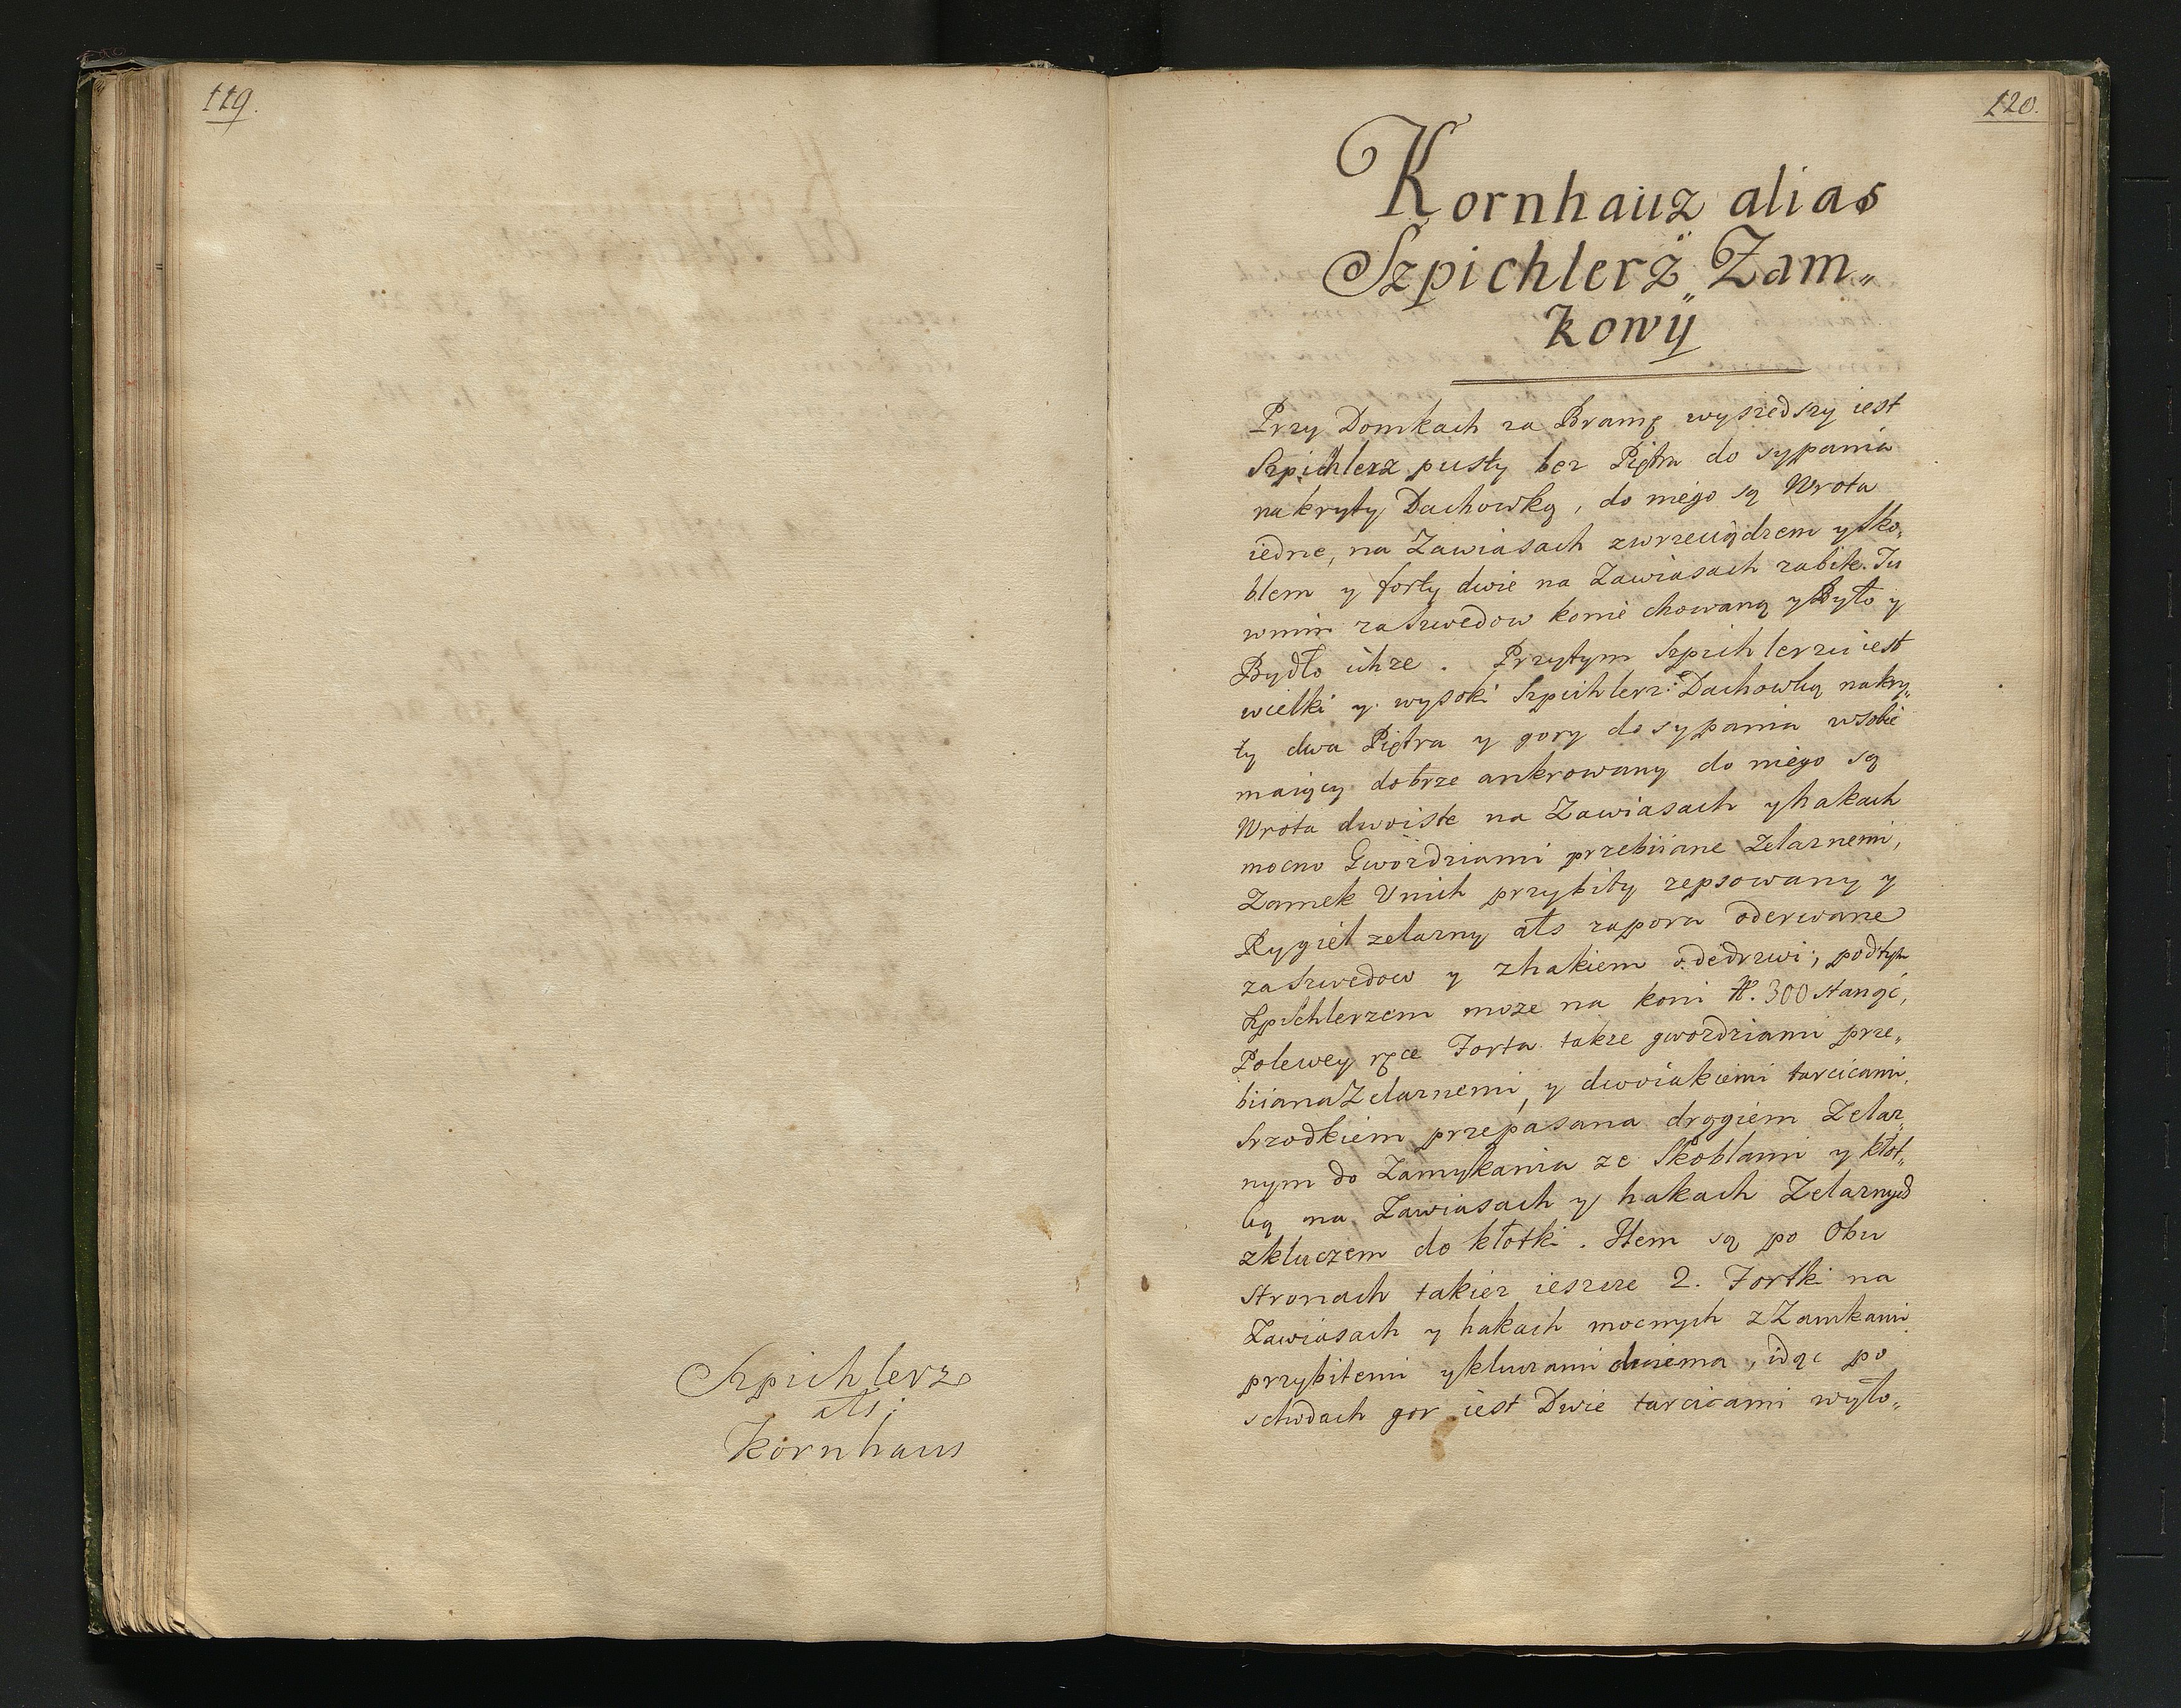 119.
Szpichlerz
als:
Kornhaus
120.
Kornhauz alias
Szpichlerz Zam„
kowy
Przy Domkach za Bramę wyszedszy iest
Szpichlerz pusty bez Piętra do sypania
nakryty Dachowką, do niego są Wrota
iedne, na Zawiasach zwrzeciądzem y sko„
blem y forty dwie na Zawiasach zabite. Tu
wnim zaszwedow konie chowaną y Było y
Bydło ichze. Przytym Szpichlerzu iest
wielki y wysoki Szpichlerz: Dachowką nakry„
ty dwa Piętra y gory do sypania wsobie
maiący dobrze ankrowany do niego są
Wrota dwoiste na Zawiasach y hakach
mocno Gwozdziami przebiiane Zelaznemi,
Zamek Unich przybity zepsowany y
Rygiel zelazny als zapora oderwane
zaszwedow y zhakiem odedrzwi, podtym
Szpichlerzem moze na koni N. 300 stangć,
Polewey ręce Forta takze gwozdziami prze„
biiana Zelaznemi, y dwoiakiemi tarcicami,
Srzodkiem przepasana drągiem Zelaz„
nym do Zamykania ze Skoblami y kłot„
ką na Zawiasach y hakach Zelaznych
zkluczem do kłotki. Item są po Obu
Stronach takiez ieszcze 2. Fortki na
Zawiasach y hakach mocnych z Zamkami
przybitemi y kluczami dwiema, idąc po
schodach gor iest Dwie tarcicami wyło„